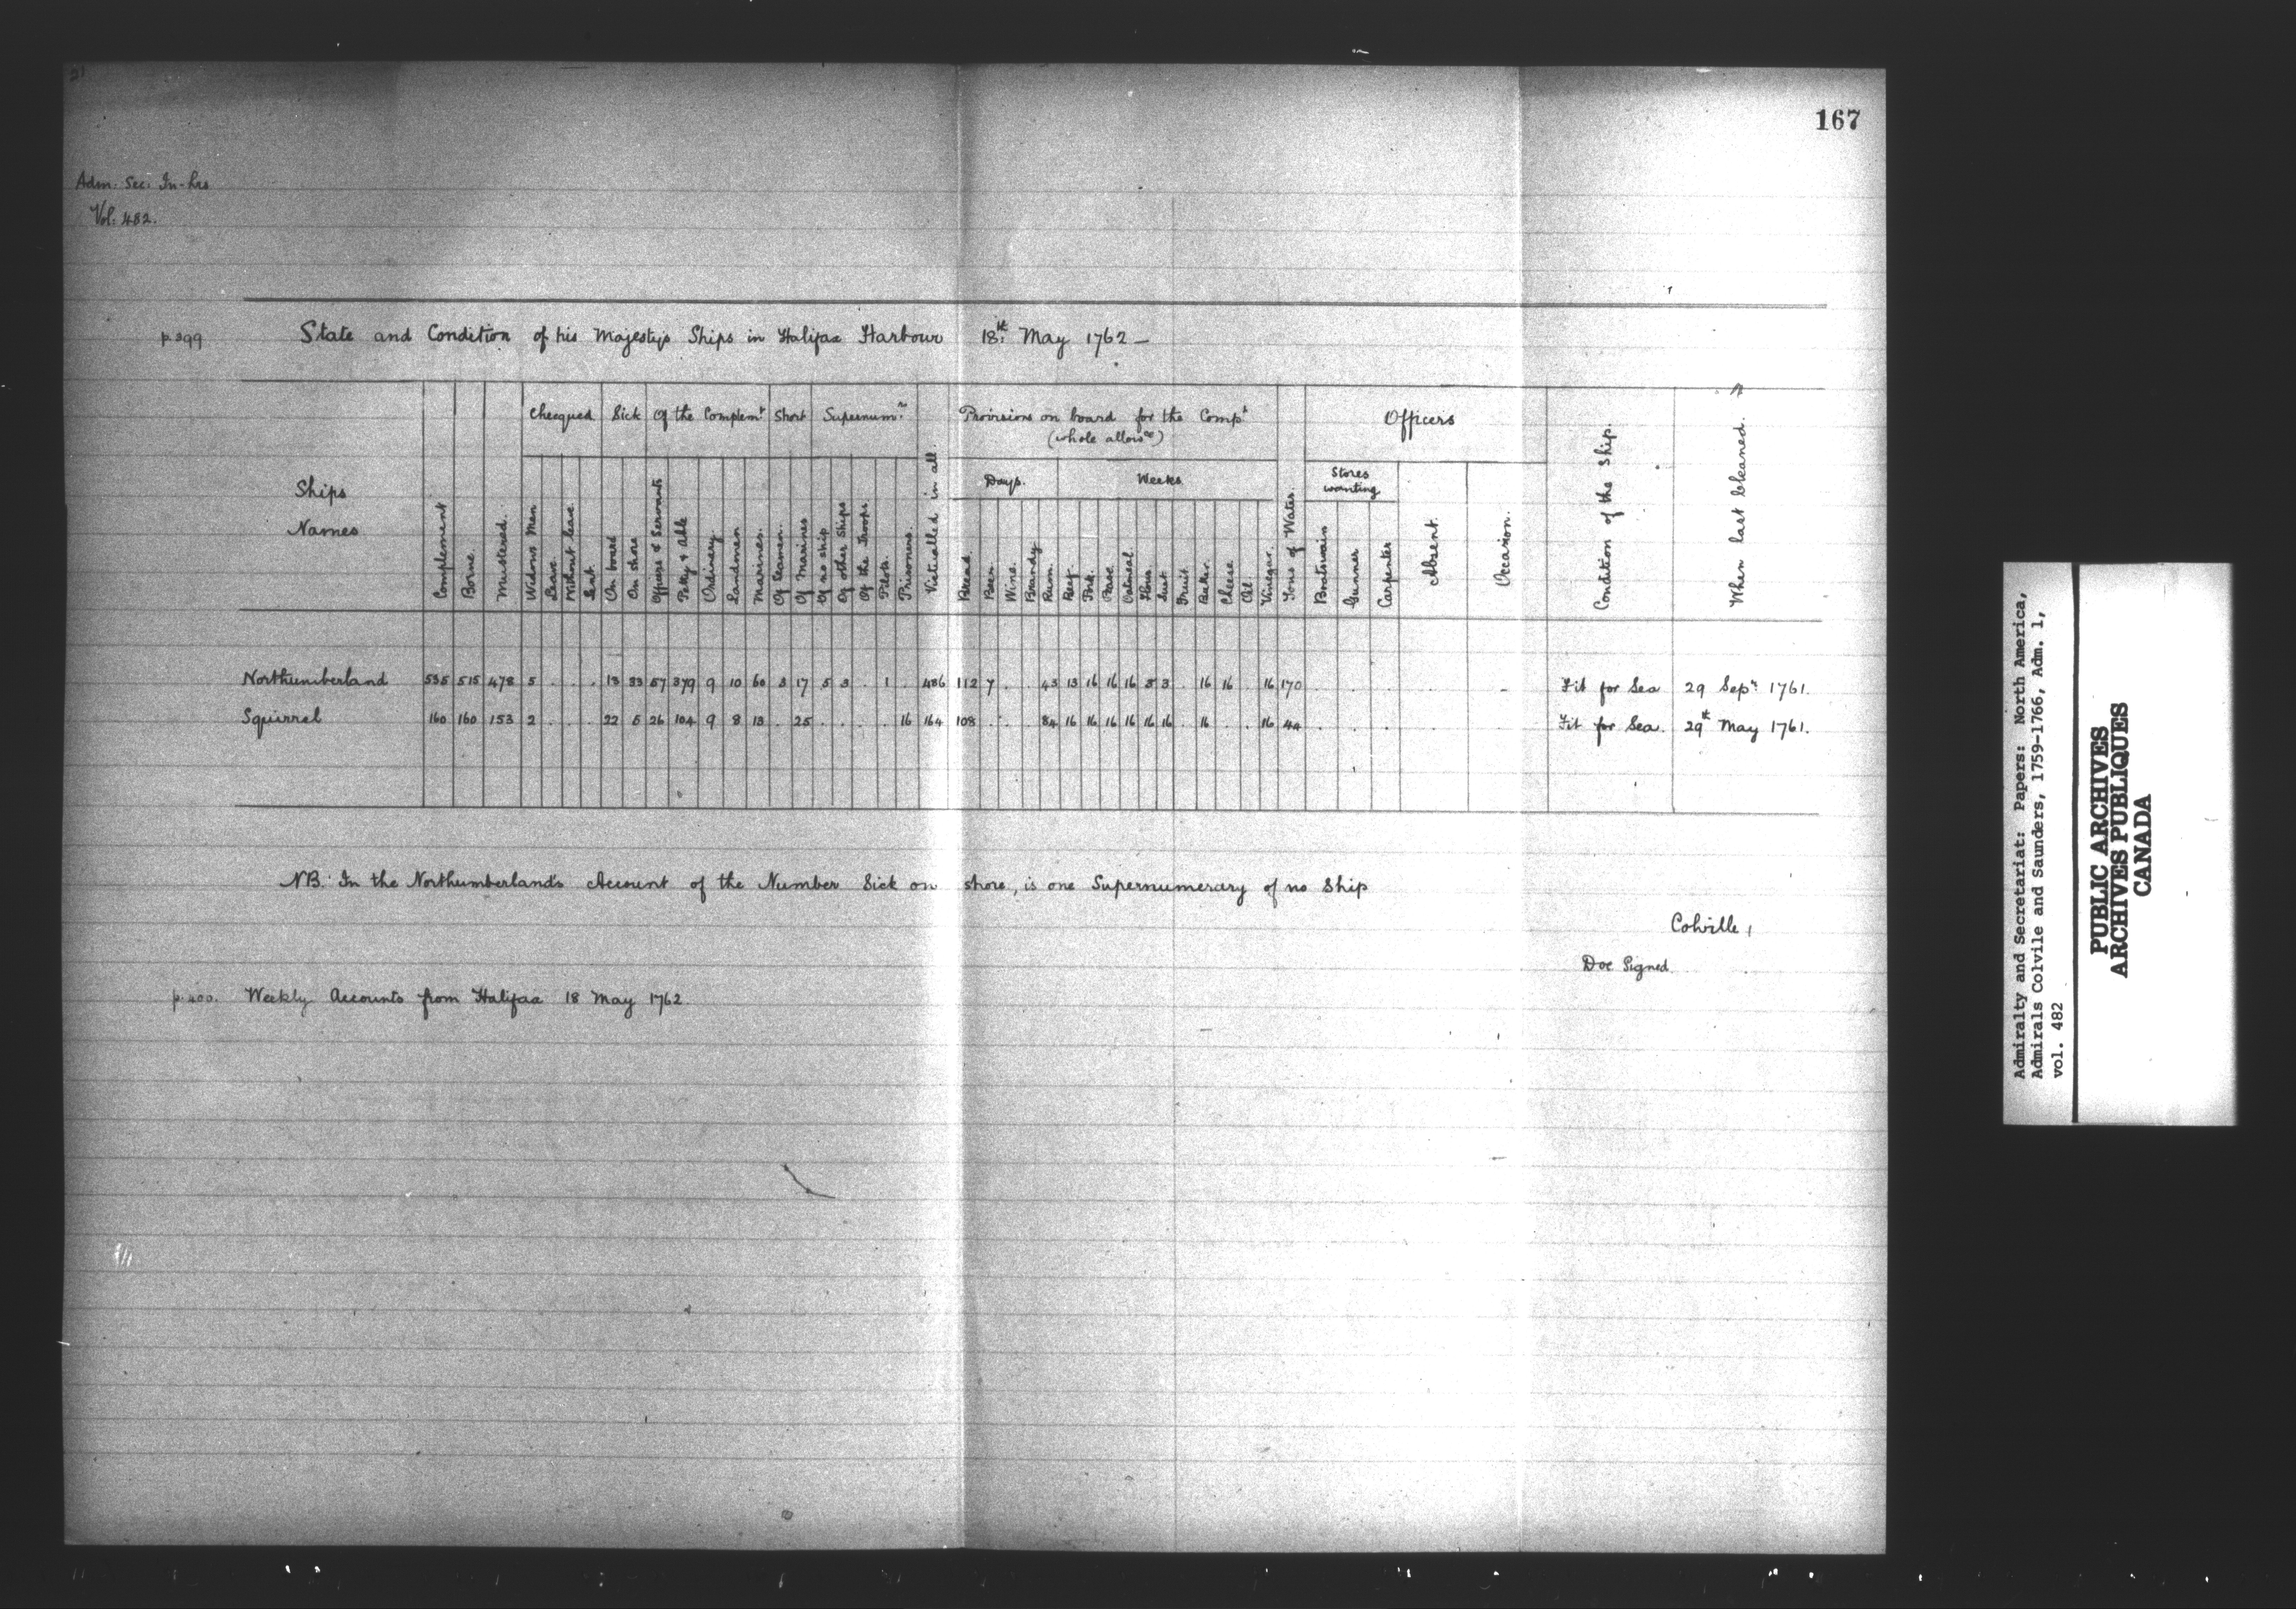 167
Adm. Sec. In-lrs
Vol. 482.
p 399 State and Condition of his Majestys Ships in Halifax Harbour 18th May 1762 —
Ships Names
Complement
Borne
Mustered.
Checqued
Widows Men
Leave
Without leave
Sent
Sick
On board
On shore
Of the Complemt
Officers & Servants
Petty & Able
Ordinary
Landmen
Marines.
Short
Of Seamen.
Of Marines
Supernumrs
Of no ship
Of other Ships
Of the Troops
Pilots.
Prisoners.
Victualled in all.
Provisions on board for the Compt
(whole allowce)
Days.
Bread.
Beer.
Wine.
Brandy
Rum.
Weeks
Beef.
Pork.
Pease
Oatmeal
Flour
Suet
Fruit.
Butter.
Cheese
Oil.
Vinegar.
Tons of Water.
Officers
Stores wanting
Boatswain
Gunner
Carpenter
Absent.
Occasion.
Condition of the Ship.
When last Cleaned.
Northumberland 535 515 478 5 . . . 13 33 57 379 9 10 60 3 17 5 3 . 1 . 486 112 7 . . 43 13 16 16 16 3 3 . 16 16 . 16 170 . . . . - Fit for Sea 29 Sepr 1761.
Squirrel 160 160 153 2 . . . 22 5 26 104 9 8 13 . 25 . . . . 16 164 108 . . . 84 16 16 16 16 16 16 . 16 . . 16 44 . . . . . Fit for Sea. 29th May 1761.
NB. In the Northumberlands Account of the Number Sick on shore, is one Supernumerary of no Ship
Colville,
Doe Signed.
p. 400. Weekly Accounts from Halifax 18 May 1762.
Admiralty and Secretariat: Papers: North America,
Admirals Colvile and Saunders, 1759-1766, Adm. 1,
vol. 482
PUBLIC ARCHIVES
ARCHIVES PUBLIQUES
CANADA